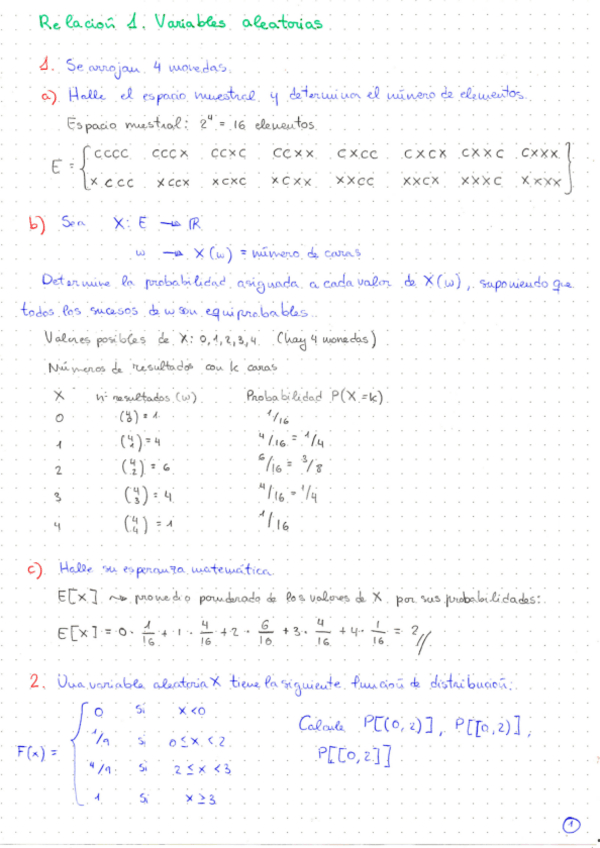 Relación 1. Variables aleatorias
1. Se arrojan 4 monedas.
a) Halle el espacio muestral y determina el número de elementos.
Espacio muestral: 2⁴ = 16 elementos
E = { CCCC CCCX CCXC CCXX CXCC CXCX CXXC CXXX
XCCC XCCX XCXC XCXX XXCC XXCX XXXC XXXX }
b) Sea X: E → ℝ
w → X(w) = número de caras
Determine la probabilidad asignada a cada valor de X(w), suponiendo que
todos los sucesos de w son equiprobables.
Valores posibles de X: 0,1,2,3,4. (hay 4 monedas)
Números de resultados con k caras
X nº resultados (w) Probabilidad P(X=k)
0 (4 0) = 1 1/16
1 (4 1) = 4 4/16 = 1/4
2 (4 2) = 6 6/16 = 3/8
3 (4 3) = 4 4/16 = 1/4
4 (4 4) = 1 1/16
c) Halle su esperanza matemática
E[X] ⇝ promedio ponderado de los valores de X por sus probabilidades:
E[X] = 0 · 1/16 + 1 · 4/16 + 2 · 6/16 + 3 · 4/16 + 4 · 1/16 = 2 //
2. Una variable aleatoria X tiene la siguiente función de distribución:
0 si x<0
1/9 si 0≤x<2
F(x) = {
4/9 si 2≤x<3
1 si x≥3
Calcule P[(0,2)], P[[0,2)],
P[[0,2]]
1